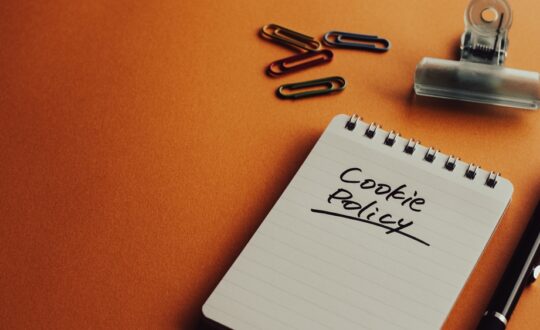 Cookie
Policy